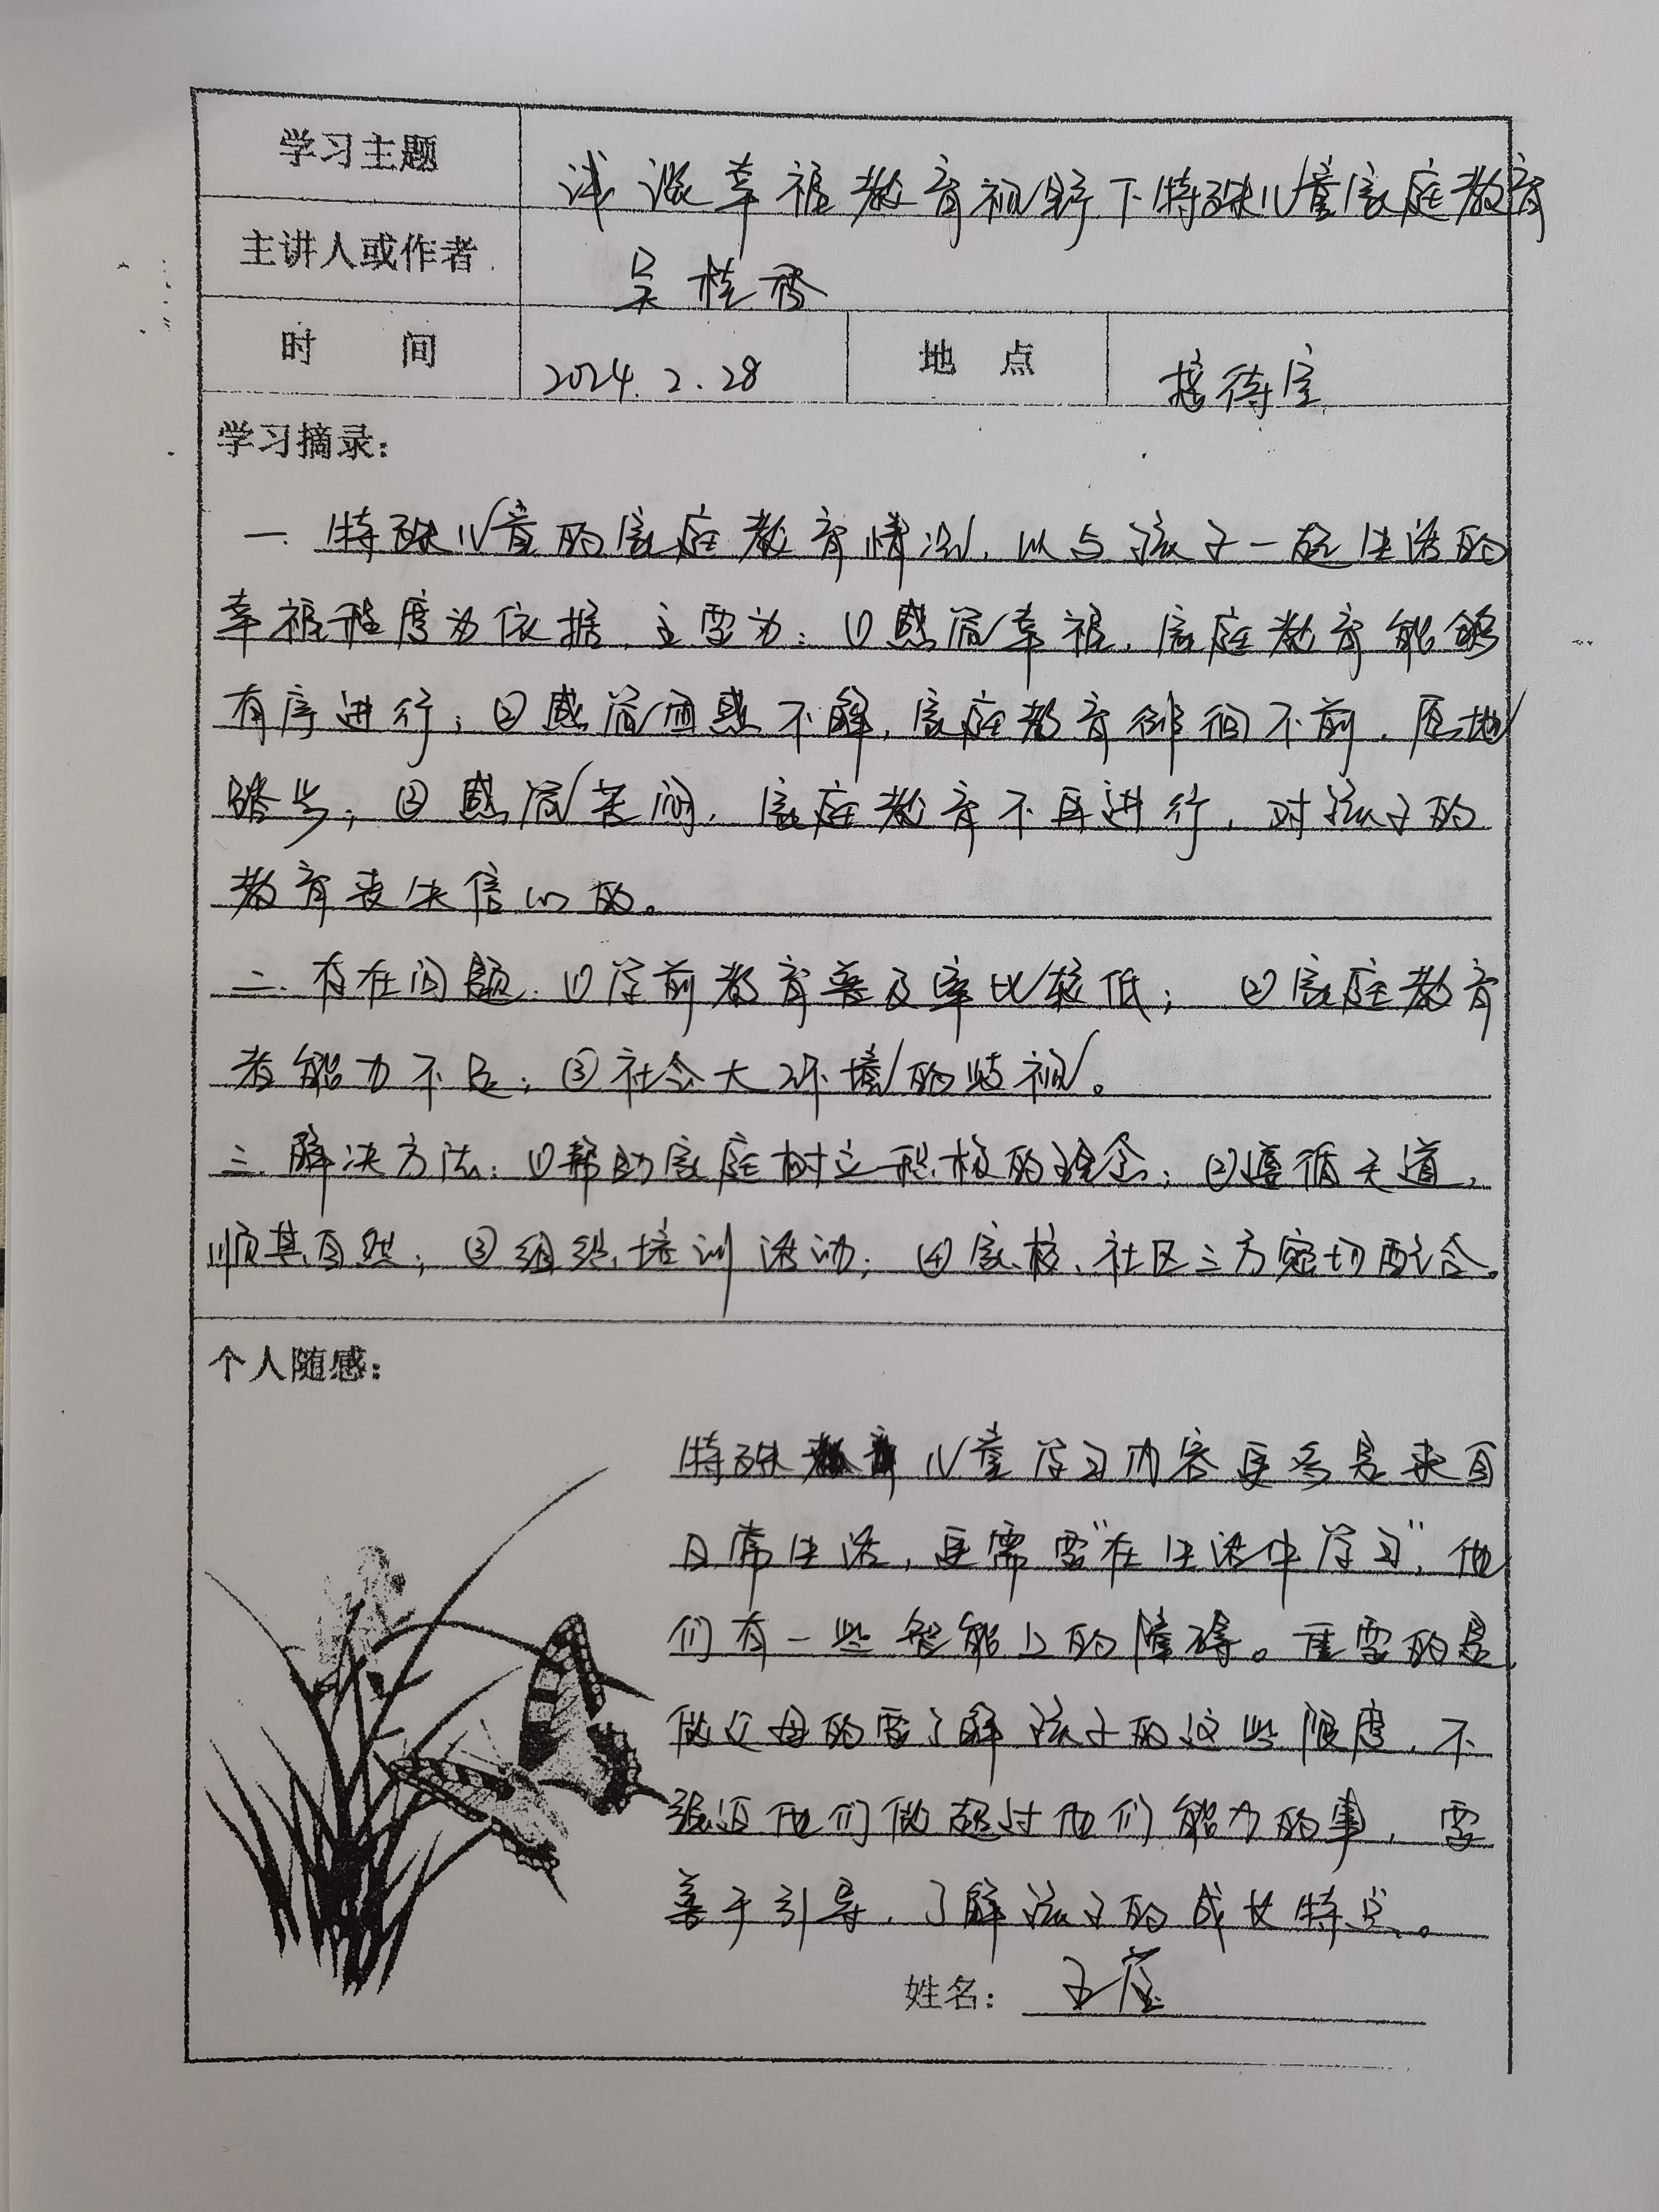 学习主题 试谈幸福教育视野下特殊儿童家庭教育
主讲人或作者 吴桂香
时 间 2024.2.28 地 点 接待室
学习摘录：
一. 特殊儿童的家庭教育情况，以与孩子一起生活的
幸福程度为依据，主要为：①感觉幸福，家庭教育能够
有序进行；②感觉困惑不解，家庭教育徘徊不前，原地
踏步；③感觉苦闷，家庭教育不再进行，对孩子的
教育丧失信心的。
二. 存在问题：①学前教育普及率比较低； ②家庭教育
者能力不足；③社会大环境的歧视。
三. 解决方法：①帮助家庭树立积极的理念；②遵循天道，
顺其自然；③组织培训活动；④家、校、社区三方密切配合。
个人随感：
特殊儿童学习内容更多是来自
日常生活，更需要“在生活中学习”，他
们有一些智能上的障碍。重要的是，
做父母的要了解孩子的这些限度，不
强迫他们做超过他们能力的事，要
善于引导，了解孩子的成长特点。
姓名： 王